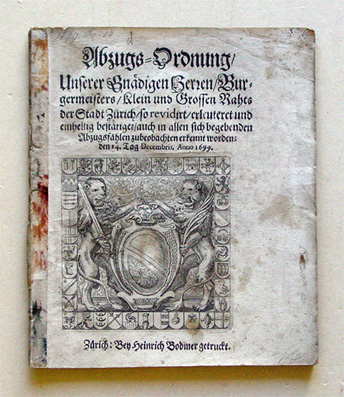 Abzugs-Ordnung/
Unserer Gnädigen Herren/Bur-
germeisters/Klein und Grossen Rahts
der Stadt Zürich/so revidirt/erleuteret und
einhellig bestätiget/auch in allen sich begebenden
Abzugsfählen zubeobachten erkennt worden:
den 14. Tag Decembris, Anno 1699.
Zürich: Bey Heinrich Bodmer getruckt.